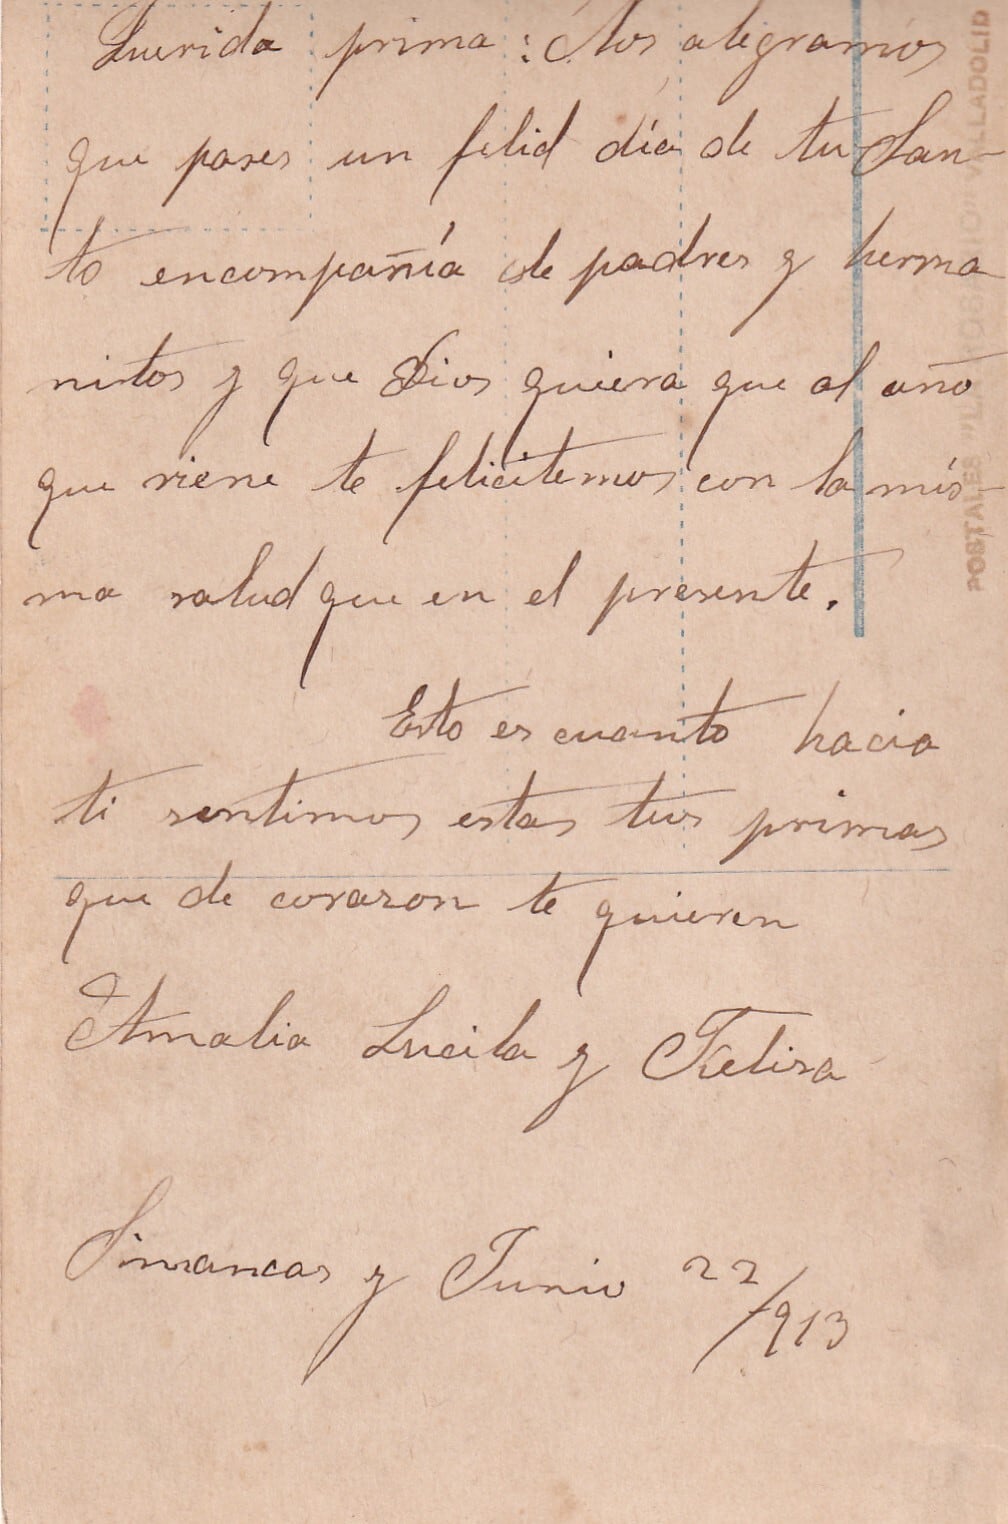 Querida prima: Nos alegramos
que pases un felid día de tu San-
to encompañía de padres y herma
nitos y que Dios quiera que al año
que viene te felicitemos con la mís-
ma salud que en el presente.
Esto es cuanto hacia
ti sentimos estas tus primas
que de corazon te quieren
Amalia Lucila y Felisa
Simancas y Junio 22/913
POSTALES VALLADOLID